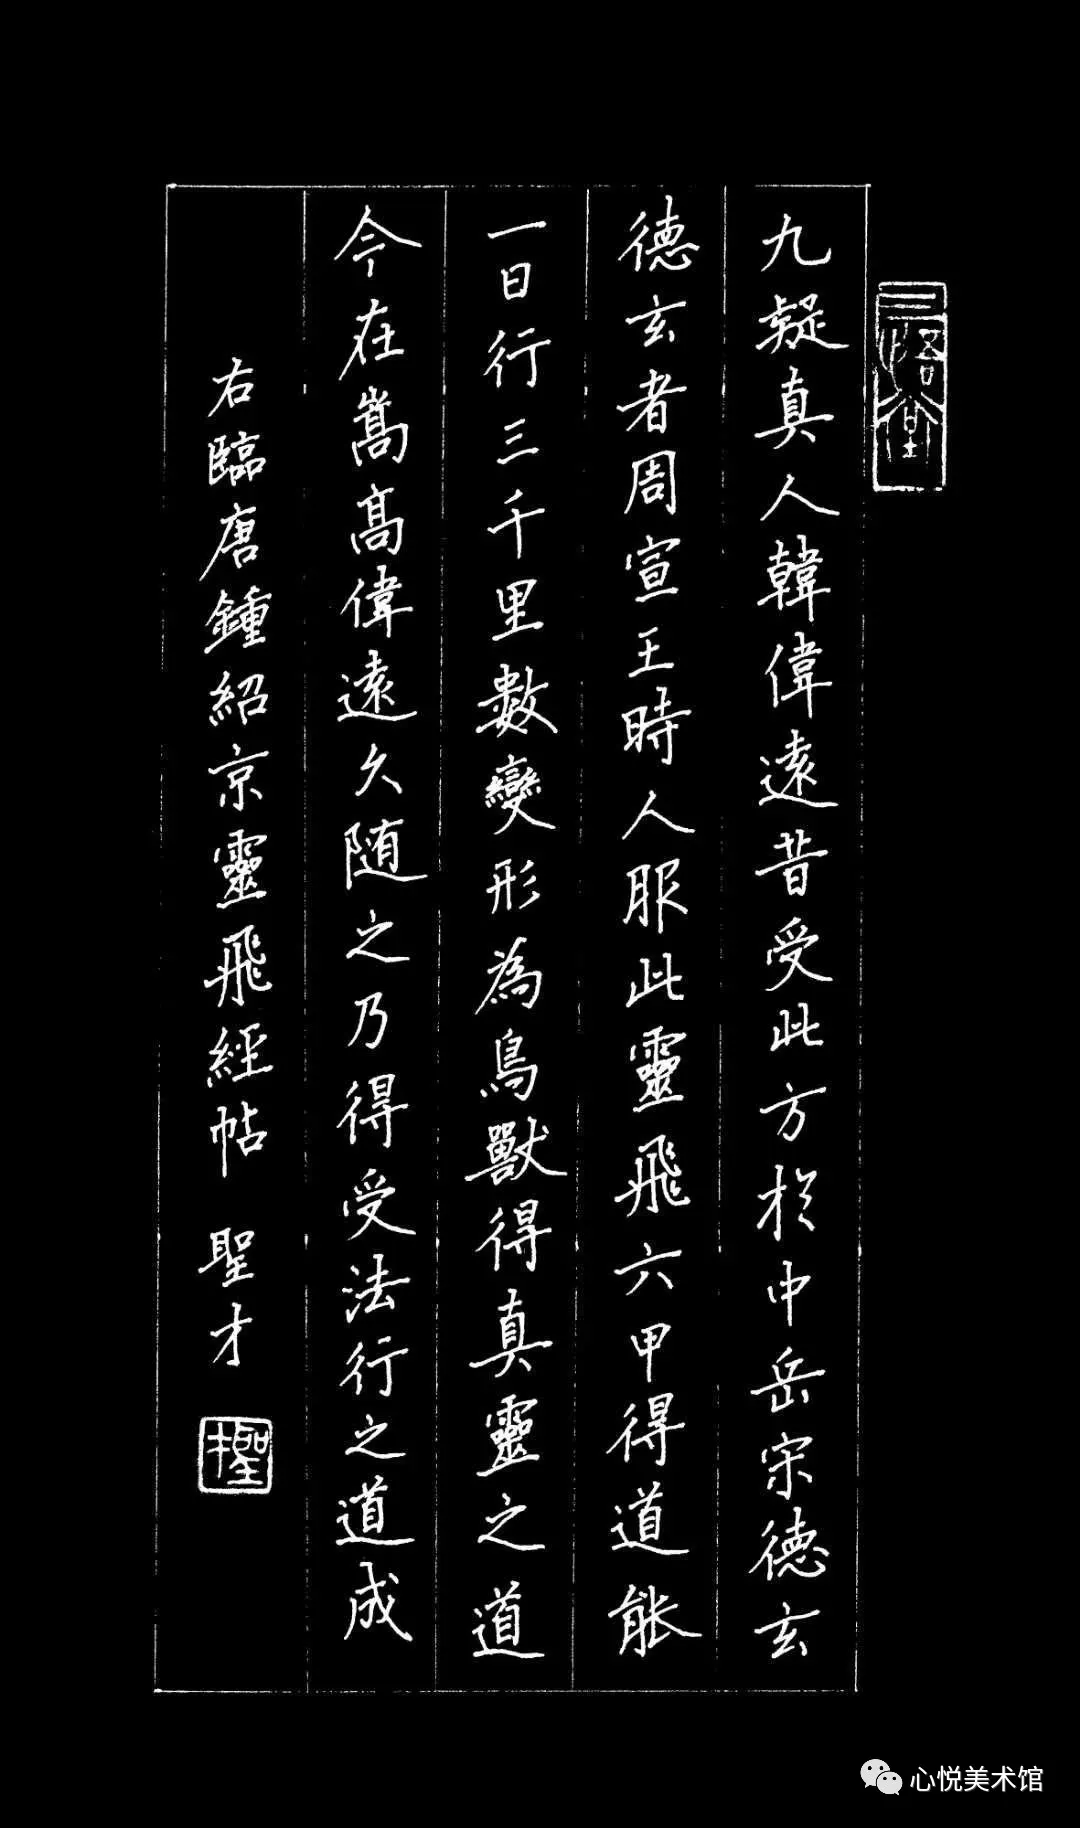 三悟堂
九疑真人韓偉遠昔受此方於中岳宋德玄
德玄者周宣王時人服此靈飛六甲得道能
一日行三千里數變形為鳥獸得真靈之道
今在嵩高偉遠久隨之乃得受法行之道成
右臨唐鍾紹京靈飛經帖 聖才
聖才
心悦美术馆